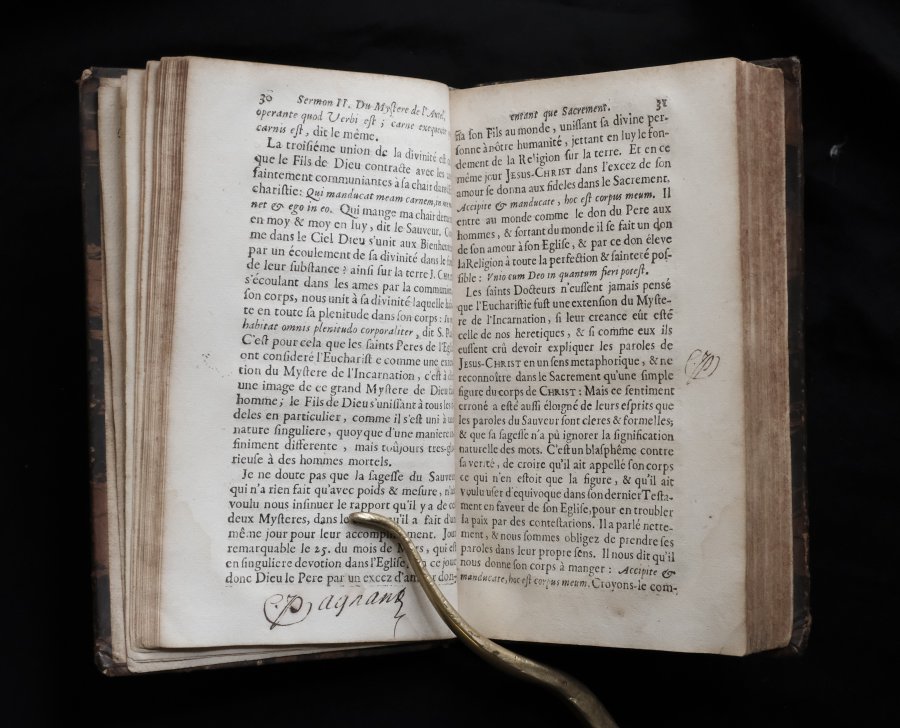 30 Sermon II. Du Mystere de l'Autel,
operante quod Verbi est ; carne exequente
carnis est, dit le même.
La troisiéme union de la divinité est
que le Fils de Dieu contracte avec les
faintement communiantes à sa chair dans
charistie: Qui manducat meam carnem, in me
net & ego in eo. Qui mange ma chair
en moy & moy en luy, dit le Sauveur.
me dans le Ciel Dieu s'unit aux
par un écoulement de sa divinité dans le
de leur substance ? ainsi sur la terre J.
s'écoulant dans les ames par la
son corps, nous unit à sa divinité laquelle
te en toute sa plenitude dans son corps :
habitat omnis plenitudo corporaliter, dit S.
C'est pour cela que les saints Peres de
ont consideré l'Eucharist e comme une
tion du Mystere de l'Incarnation, c'est à
une image de ce grand Mystere de Dieu
homme; le Fils de Dieu s'unissant à tous les
deles en particulier, comme il s'est uni à
nature singuliere, quoyque d'une maniere
finiment differente, mais toûjours
rieuse à des hommes mortels.
Je ne doute pas que la sagesse du
qui n'a rien fait qu'avec poids & mesure,
voulu nous insinuer le rapport qu'il y a de
deux Mysteres, dans qu'il a fait
même jour pour leur
remarquable le 25. du mois de qui est
en singuliere devotion dans l'Eglise. ce jour
donc Dieu le Pere par un excez don-
Pagnany
entant que Sacrement. 31
na son Fils au monde, unissant sa divine per-
sonne à nôtre humanité, jettant en luy le fon-
dement de la Religion sur la terre. Et en ce
même jour JESUS-CHRIST dans l'excez de son
amour se donna aux fideles dans le Sacrement,
Accipite & manducate, hoc est corpus meum. Il
entre au monde comme le don du Pere aux
hommes, & sortant du monde il se fait un don
de son amour à son Eglise, & par ce don éleve
la Religion à toute la perfection & sainteté pos-
sible : Vnio cum Deo in quantum fieri potest.
Les saints Docteurs n'eussent jamais pensé
que l'Eucharistie fust une extension du Myste-
re de l'Incarnation, si leur creance eût esté
celle de nos heretiques, & si comme eux ils
eussent crû devoir expliquer les paroles de
JESUS-CHRIST en un sens metaphorique, & ne
reconnoître dans le Sacrement qu'une simple
figure du corps de CHRIST : Mais ce sentiment
erroné a esté aussi éloigné de leurs esprits que
les paroles du Sauveur sont cleres & formelles;
& que sa sagesse n'a pû ignorer la signification
naturelle des mots. C'est un blasphême contre
sa verité, de croire qu'il ait appellé son corps
ce qui n'en estoit que la figure, & qu'il ait
voulu user d'equivoque dans son dernier Testa-
ment en faveur de son Eglise, pour en troubler
la paix par des contestations. Il a parlé nette-
ment, & nous sommes obligez de prendre ses
paroles dans leur propre sens. Il nous dit qu'il
nous donne son corps à manger : Accipite &
manducate, hoc est corpus meum. Croyons-le com-